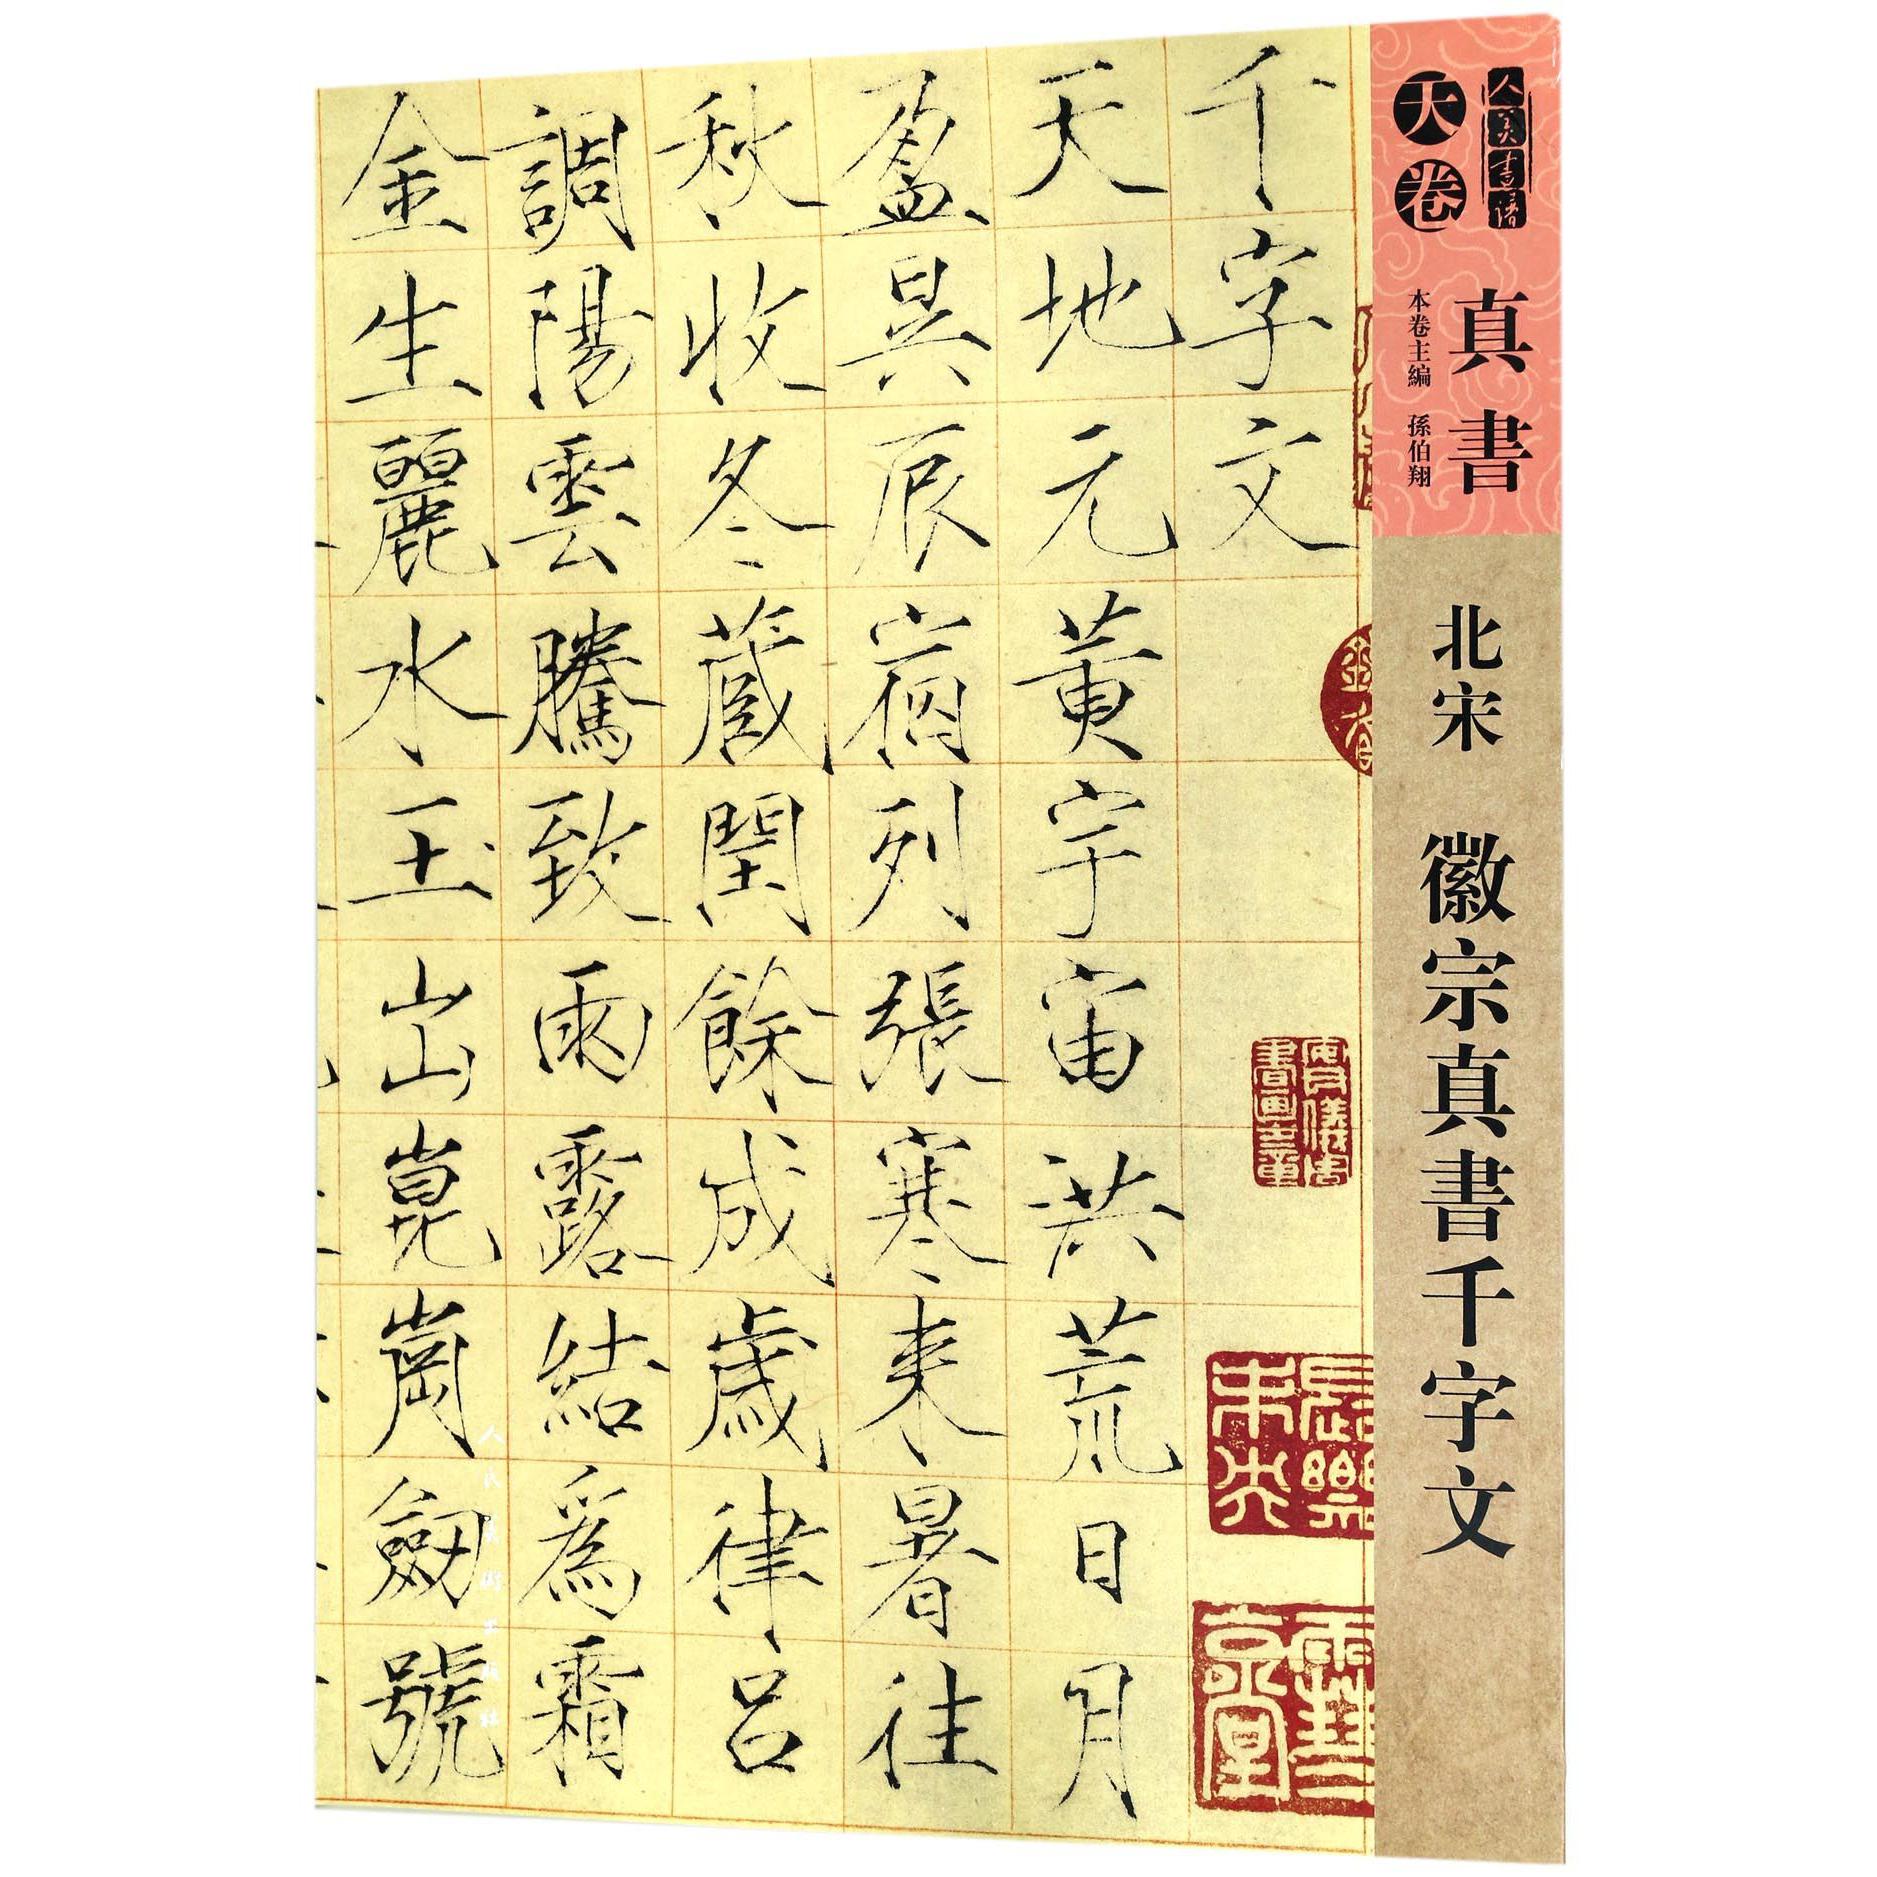 人美書譜
天卷
真書
本卷主編 孫伯翔
北宋 徽宗真書千字文
千字文
天地元黄宇宙洪荒日月
盈昃辰宿列張寒来暑往
秋收冬蔵閏餘成歲律呂
調陽雲騰致雨露結爲霜
金生麗水玉出崑崗劒號
人民美術出版社